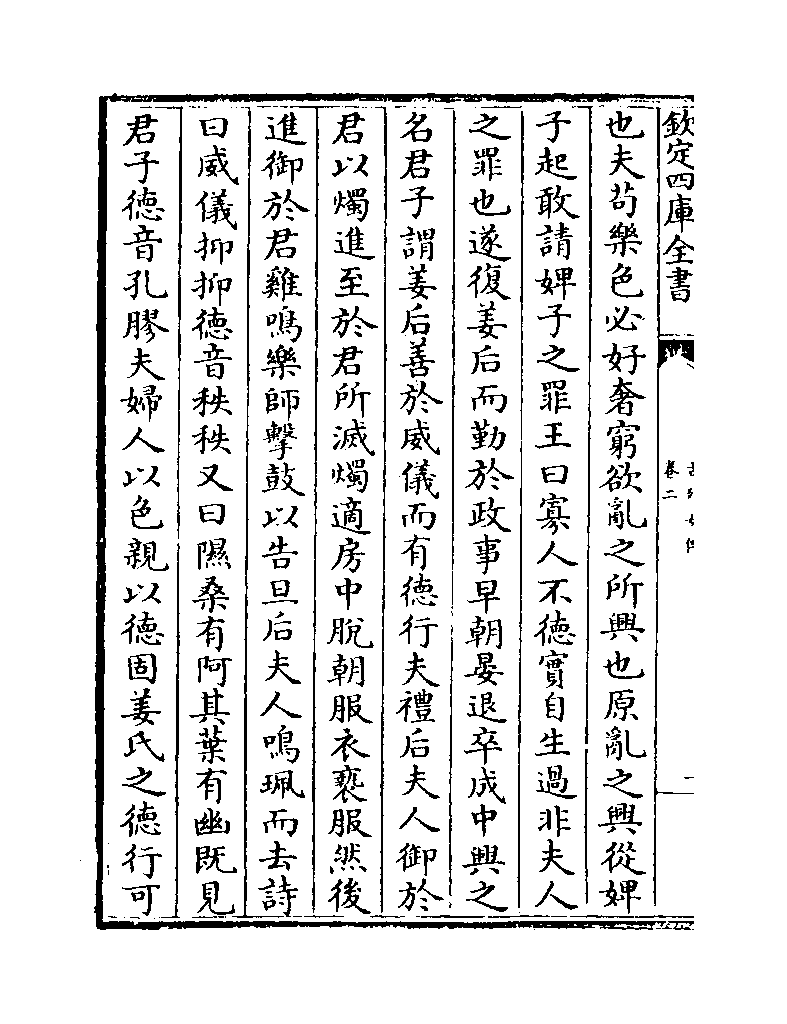 欽定四庫全書
卷二
也夫苟樂色必好奢窮欲亂之所興也原亂之興從婢
子起敢請婢子之罪王曰寡人不德實自生過非夫人
之罪也遂復姜后而勤於政事早朝晏退卒成中興之
名君子謂姜后善於威儀而有德行夫禮后夫人御於
君以燭進至於君所滅燭適房中脫朝服衣䙝服然後
進御於君雞鳴樂師擊鼓以告旦后夫人鳴珮而去詩
曰威儀抑抑德音秩秩又曰隰桑有阿其葉有幽既見
君子德音孔膠夫婦人以色親以德固姜氏之德行可